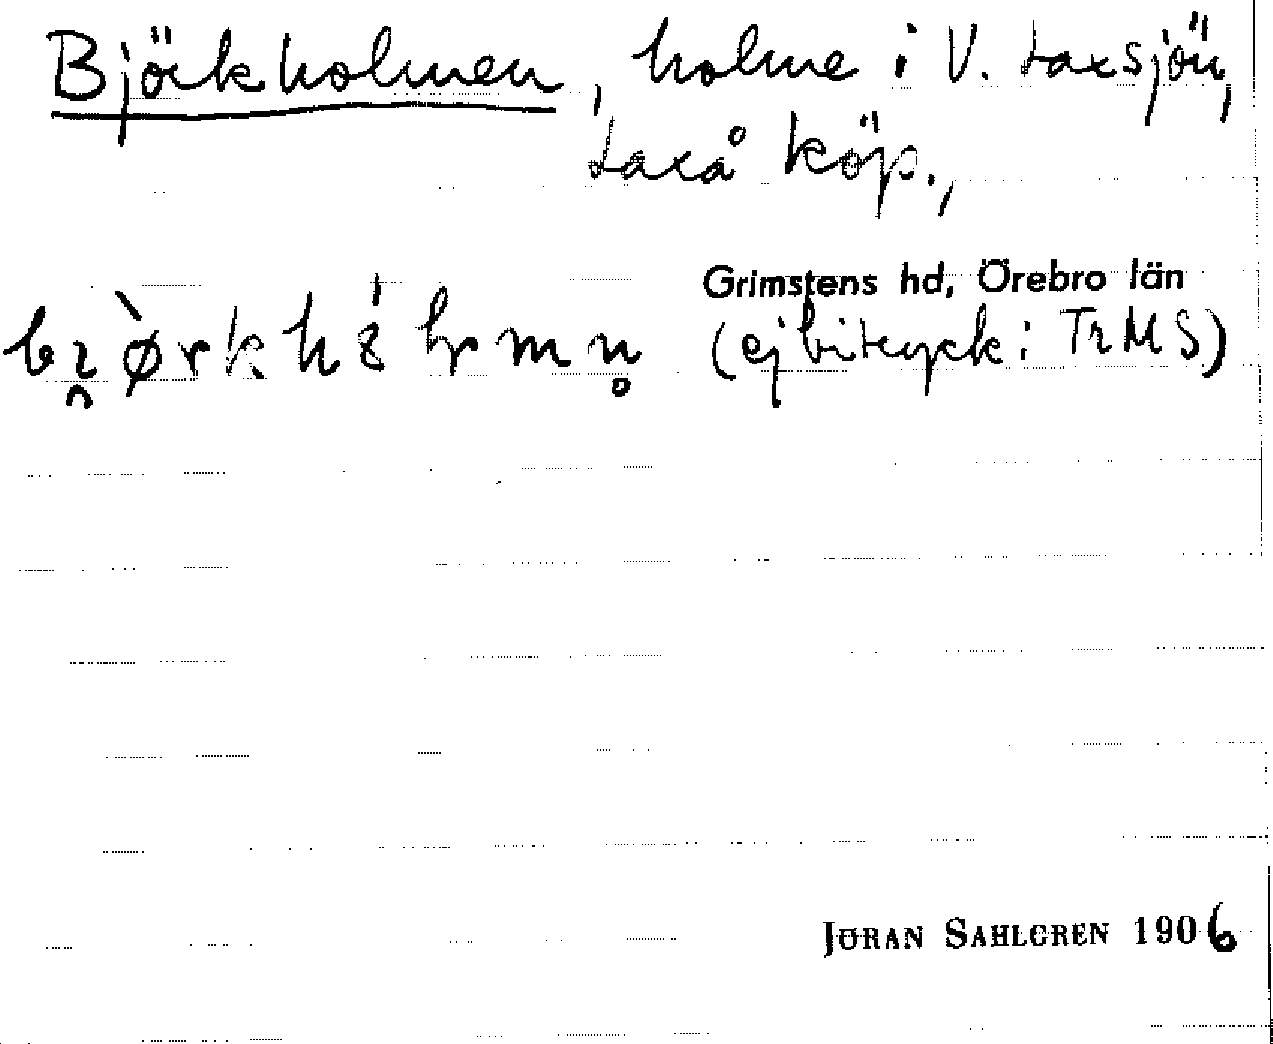 Björkholmen, holme i V. Laxsjön,
Laxå köp.,
Grimstens hd, Örebro län
(ej bitryck i TrMS)
JÖRAN SAHLGREN 1906